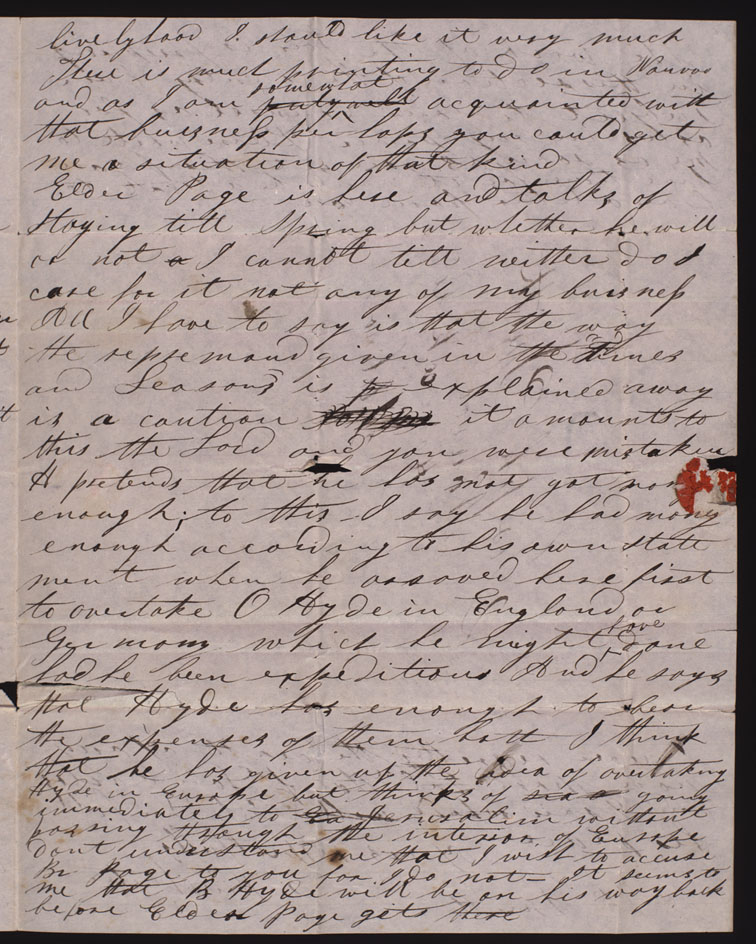 livelyhood I should like it very much
There is much printing to do in Nauvoo
and as I am somewhat acquainted with
that buisness per haps you could get
me a situation of that kind
Elder Page is here and talks of
staying till Spring but whether he will
or not I cannot tell neither do I
care for it not any of my buisness
All I have to say is that the way
the repremand given in the Times
and Seasons is explained away
is a caution it amounts to
this the Lord and you were mistaken
H pretends that he has not got mony
enough; to this I say he had mony
enough according to his own state
ment when he arraved here first
to overtake O Hyde in England or
Germany which he might have done
had he been expeditious And he says
that Hyde has enough to bear
the expenses of them both I think
that he has given up the idea of overtaking
Hyde in Europe but thinks of going
immediately to Jerusalem without
passing through the interior of Europe
dont understand me that I wish to accuse
Br Page to you for I do not It seems to
me that B Hyde will be on his way back
before Elder Page gets there